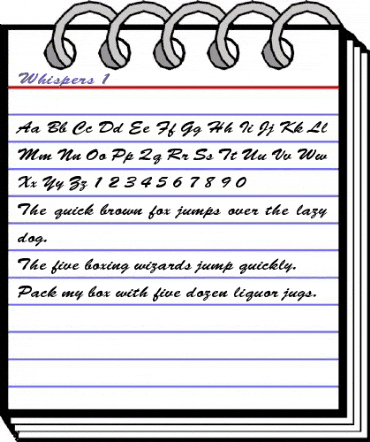 Whispers 1
Aa Bb Cc Dd Ee Ff Gg Hh Ii Jj Kk Ll
Mm Nn Oo Pp Qq Rr Ss Tt Uu Vv Ww
Xx Yy Zz 1 2 3 4 5 6 7 8 9 0
The quick brown fox jumps over the lazy
dog.
The five boxing wizards jump quickly.
Pack my box with five dozen liquor jugs.